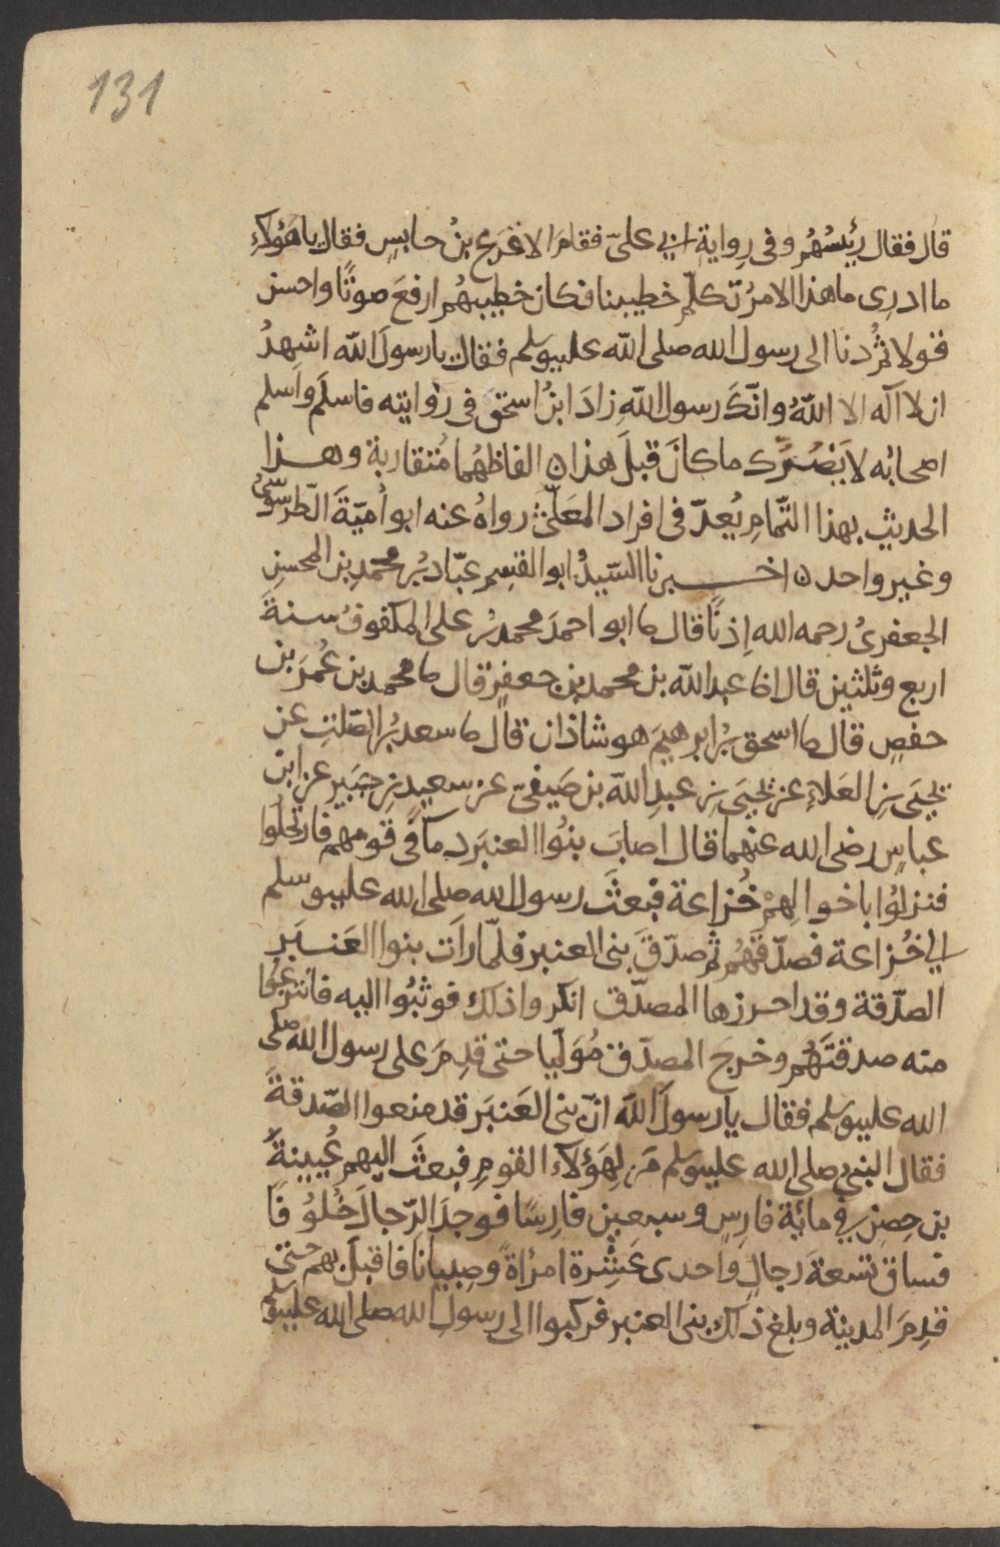 131
قال فقال رئيسُهُم وفى رِوايةِ ابى علىّ فقامَ الاقرَع بنُ حابسٍ فقال يا هَؤُلاءِ
ما ادرى ما هذا الامرُ تكلّم خطيبنا فكان خطيبهُم ارفعَ صوتًا واحسن
قولا ثمّ دنا الى رسول الله صلى الله عليه وسلم فقال يا رسولَ الله اشهدُ
ان لا اله الا اللّهُ وانّكَ رسول اللّهِ زادَ ابنُ اسحقَ فى روايته فاسلَم واسلم
اصحابُه لا يَضُرّك ما كانَ قبلَ هذا ن الفاظهُما مُتقاربة وهذا
الحديث بهذا التّمامِ يُعدّ فى افراد المعَلّى رواهُ عنه ابو اُميّةَ الطّرسوسىُّ
وغير واحد ن اخبرنا السّيدُ ابو القسِم عبّاد بنُ محمّدِ بن المحسنِ
الجعفرىُ رحمه الله إذنًا قال ٮا ابو احمدَ محمدُ بنُ على المكفوفُ سنةَ
اربع وثلثين قال انا عبد اللّه بن محمد بن جعفرٍ قال ٮا محمد بن عُمَرَ بن
حفصٍ قال ٮا اسحق بنُ ابرهيمَ هو شاذان قال ٮا سعد بنُ الصّلتِ عن
يحيَى بنِ العَلاءِ عن يحيَى بنِ عبدِ اللّه بن صَيفىّ عن سعيدِ بنِ جبَيرٍ عن ابن
عباسٍ رضى الله عنهما قال اصابَ بنُوا العنبَر دما فى قومهم فارتحلُوا
فنزلوُا باخوالِهِمْ خُزاعة فبعثَ رسول الله صلى الله عليه وسلم
الى خُزاعة فصدّقَهُم ثمّ صدّقَ بنى العنبر فلمّا رات بنوا العَنبَرِ
الصدّقة وقد احرزها المصدّق انكروا ذلك فوثبُوا اليه فانتزعُوا
منه صدقتَهُم وخرجَ المصدّق مُوَلّيا حتى قدِمَ على رسول الله صلى
الله عليه وسلم فقال يا رسولَ اللّه انّ بنى العَنبَر قد منعوا الصّدقةَ
فقال النبىّ صلى الله عليه وسلم مَن لِهَؤُلاَءِ القومِ فبعثَ اليهم عُيينةَ
بن حِصنٍ فى مائة فارسٍ وسبعين فارسًا فوجدَ الرّجالَ خُلُوُفًا
فساق تسعةَ رجالٍ واحدى عَشْرة امرُاةً وصِبيانًا فاقبلَ بهم حتى
قدِمَ المدينة وبلغ ذلك بنى العنبر فركبوا الى رسولِ الله صلى الله عليه وسلم